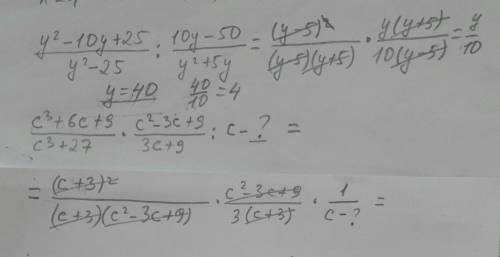 y²-10y+25/y²-25 : 10y-50/y²+5y = (y-5)²/(y-5)(y+5) · y(y+5)/10(y-5) = y/10
y=40 40/10=4
c³+6c+9/c³+27 · c²-3c+9/3c+9 : c-? =
= (c+3)²/(c+3)(c²-3c+9) · c²-3c+9/3(c+3) · 1/c-? =